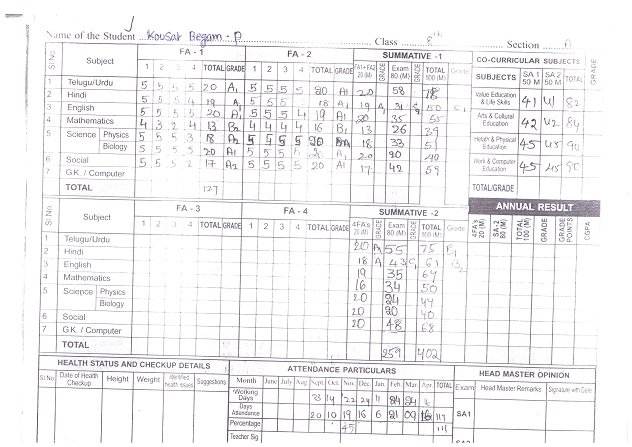 Name of the Student Kousar Begam - P Class 8th Section A
Sl No Subject FA - 1 FA - 2 SUMMATIVE -1 CO-CURRICULAR SUBJECTS GRADE
1 2 3 4 TOTAL GRADE 1 2 3 4 TOTAL GRADE FA1+FA2 20 (M) GRADE Exam 80 (M) GRADE TOTAL 100 (M) Grade SUBJECTS SA 1 50 M SA 2 50 M TOTAL
1 Telugu/Urdu 5 5 5 5 20 A1 5 5 5 5 20 A1 20 58
2 Hindi 5 5 5 4 19 A1 5 5 5 18 A1 19 A 31 50 C1
3 English 5 5 5 5 20 A1 5 5 5 4 19 A1 20 35 55
4 Mathematics 4 3 2 4 13 B2 4 4 4 4 16 B1 13 26 39
5 Science Physics 5 5 5 3 18 18 33 51
Biology 5 5 5 5 20 A1 5 5 5 5 20 A1 20 20 40
6 Social 5 5 5 2 17 A2 5 5 5 5 20 A1 17 42 59
7 G.K. / Computer
TOTAL 127
Value Education & Life Skills 41 41 82
Arts & Cultural Education 42 42 84
Health & Physical Education 45 45 90
Work & Computer Education 45 45 90
TOTAL/GRADE
Sl No Subject FA - 3 FA - 4 SUMMATIVE -2 ANNUAL RESULT
1 2 3 4 TOTAL GRADE 1 2 3 4 TOTAL GRADE 4FA's 20 (M) GRADE Exam 80 (M) GRADE TOTAL 100 (M) Grade 4FA1 20 (M) SA-2 80 (M) TOTAL 100 (M) GRADE GRADE POINTS CGPA
1 Telugu/Urdu 20 A1 55 75 B1
2 Hindi 18 A 43 C1 61 B2
3 English 19 35
4 Mathematics 16 34 50
5 Science Physics 20 24 44
Biology 20 20 40
6 Social 20 48 68
7 G.K. / Computer
TOTAL 259 402
HEALTH STATUS AND CHECKUP DETAILS ATTENDANCE PARTICULARS HEAD MASTER OPINION
Sl No Date of Health Checkup Height Weight Identified health issues Suggestions Month June July Aug Sept. Oct. Nov. Dec. Jan. Feb. Mar. Apr. TOTAL Exam Head Master Remarks Signature with Date
Working Days 14 22 24 11 24 24
Days Attendance 20 10 19 16 6 21 09 16 117 SA1
Percentage 45
Teacher Sig
SA2